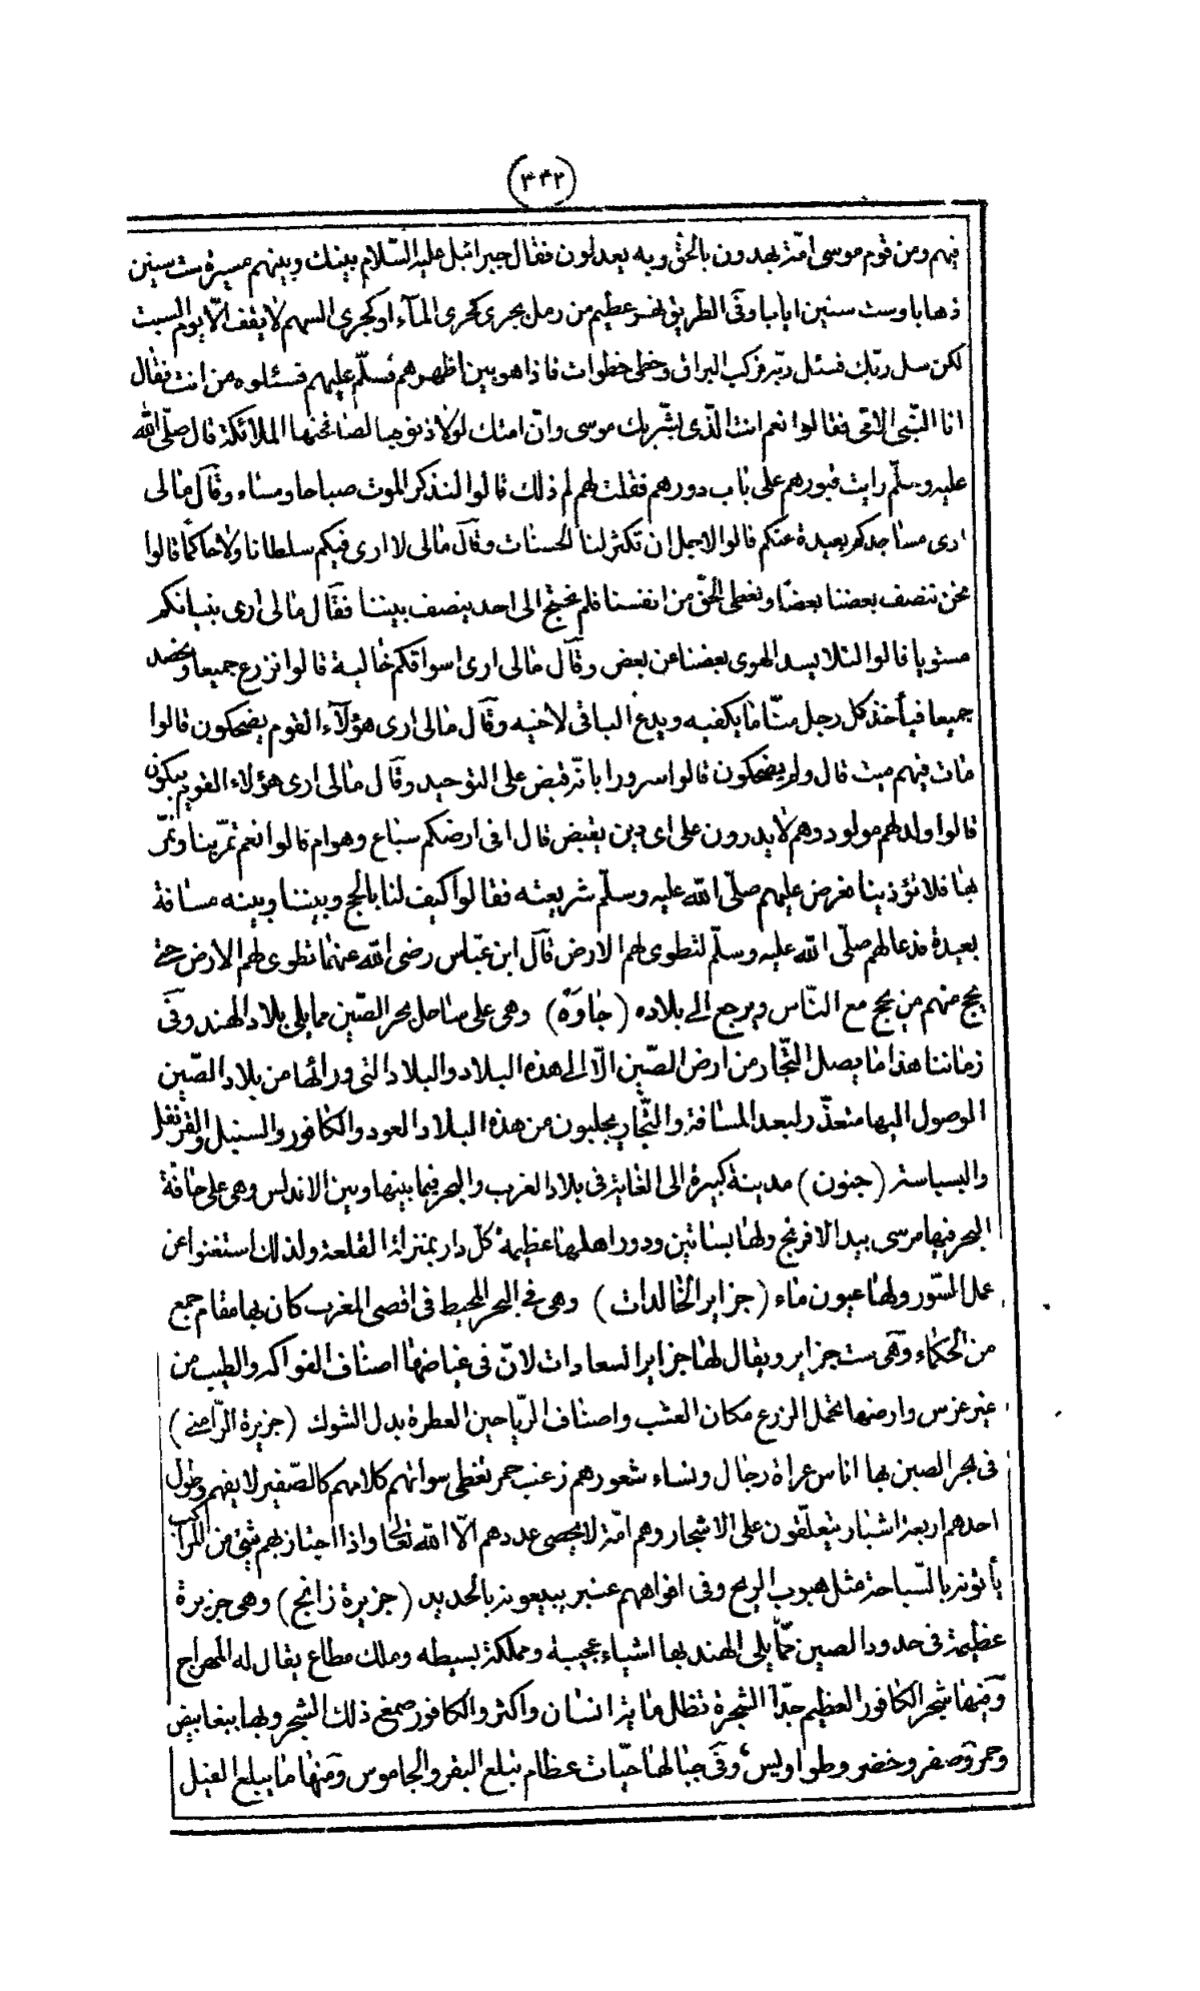 (٣٤٢)
فيهم ومن قوم موسى امّة يهدون بالحقّ وبه يعدلون فقال جبرائيل عليه السّلام بينك وبينهم مسيرة ست سنين
ذهابا وست سنين ايابا وفى الطريق نهر عظيم من رمل يجرى كجرى المآء او كجرى السهم لا يقف الّا يوم السبت
لكن سل ربّك فسئل ربّه فركب البراق وخطى خطوات فاذا هو بين اظهرهم فسلّم عليهم فسئلوه من انت فقال
انا النّبىّ الامّى فقالوا نعم انت الّذى بشّر بك موسى وانّ امتك لولا ذنوبها لصافحتها الملائكة قال صلّى الله
عليه وسلّم رايت قبورهم على باب دورهم فقلت لهم لم ذلك قالوا لنذكر الموت صباحا ومساء وقال مالى
ارى مساجدكم بعيدة عنكم قالوا لاجل ان تكثر لنا الحسنات وقال مالى لا ارى فيكم سلطانا ولا حاكما قالوا
نحن ننصف بعضنا بعضا ونعطى الحقّ من انفسنا فلم نحتج الى احد ينصف بيننا فقال مالى ارى بنيانكم
مستويا قالوا لئلا يسد الهوى بعضنا عن بعض وقال مالى ارى اسواقكم خالية قالوا نزرع جميعا ونحصد
جميعا فيأخذ كل رجل منّا ما يكفيه ويدع الباقى لاخيه وقال مالى ارى هؤلآء القوم يضحكون قالوا
مات فيهم ميت قال ولم يضحكون قالوا سرورا بانّه قبض على التوحيد وقال مالى ارى هؤلاء القوم يبكون
قالوا ولد لهم مولود وهم لا يدرون على اى دين يقبض قال افى ارضكم سباع وهوام قالوا نعم تمرّ بنا ونمرّ
بها فلا تؤذينا فعرض عليهم صلّى الله عليه وسلّم شريعته فقالوا كيف لنا بالحج وبيننا وبينه مسافة
بعيدة فدعا لهم صلّى الله عليه وسلّم لتطوى لهم الارض قال ابن عبّاس رضى الله عنهما تطوى لهم الارض حتى
يحج منهم من يحج مع النّاس ويرجع الى بلاده (جاوه) وهى على ساحل بحر الصّين مما يلى بلاد الهند وفى
زماننا هذا ما يصل التّجار من ارض الصّين الّا الى هذه البلاد والبلاد التى ورائها من بلاد الصّين
الوصول اليها متعذّر لبعد المسافة والتّجار يجلبون من هذه البلاد العود والكافور والسنبل والقرنفل
والبسباسة (جنون) مدينة كبيرة الى الغاية فى بلاد الغرب والبحر فيما بينها وبين الاندلس وهى على حافة
البحر فيها مرسى بيد الافرنج ولها بساتين ودور اهلها عظيمة كلّ دار بمنزلة القلعة ولذلك استغنوا عن
عمل السّور ولها عيون ماء (جزاير الخالدات) وهى فى البحر المحيط فى اقصى المغرب كان بها مقام جمع
من الحكماء وهى ست جزاير ويقال لها جزاير السعادات لانّ فى غياضها اصناف الفواكه والطيب من
غير غرس وارضها تحمل الزرع مكان العشب واصناف الرّياحين العطرة بدل الشوك (جزيرة الرّامنى)
فى بحر الصين بها اناس عراة رجال ونساء شعورهم زغب حمر تغطى سوآتهم كلامهم كالصّفير لا يفهم وطول
احدهم اربعة اشبار يتعلّقون على الاشجار وهم امّة لا يحصى عددهم الّا الله تعالى واذا اجتاز بهم شئ من المراكب
يأتونه بالسّباحة مثل هبوب الريح وفى افواههم عنبر يبيعونه بالحديد (جزيرة زانج) وهى جزيرة
عظيمة فى حدود الصين ممّا يلى الهند بها اشياء عجيبة ومملكة بسيطه وملك مطاع يقال له المهراج
ومنها شجر الكافور العظيم جدّا الشجرة تظل مائة انسان واكثر والكافور صمغ ذلك الشجر وبها ببغا بيض
وحمر وصفر وخضر وطواويس وفى جبالها حيّات عظام تبلع البقر والجاموس ومنها ما يبلع الفيل